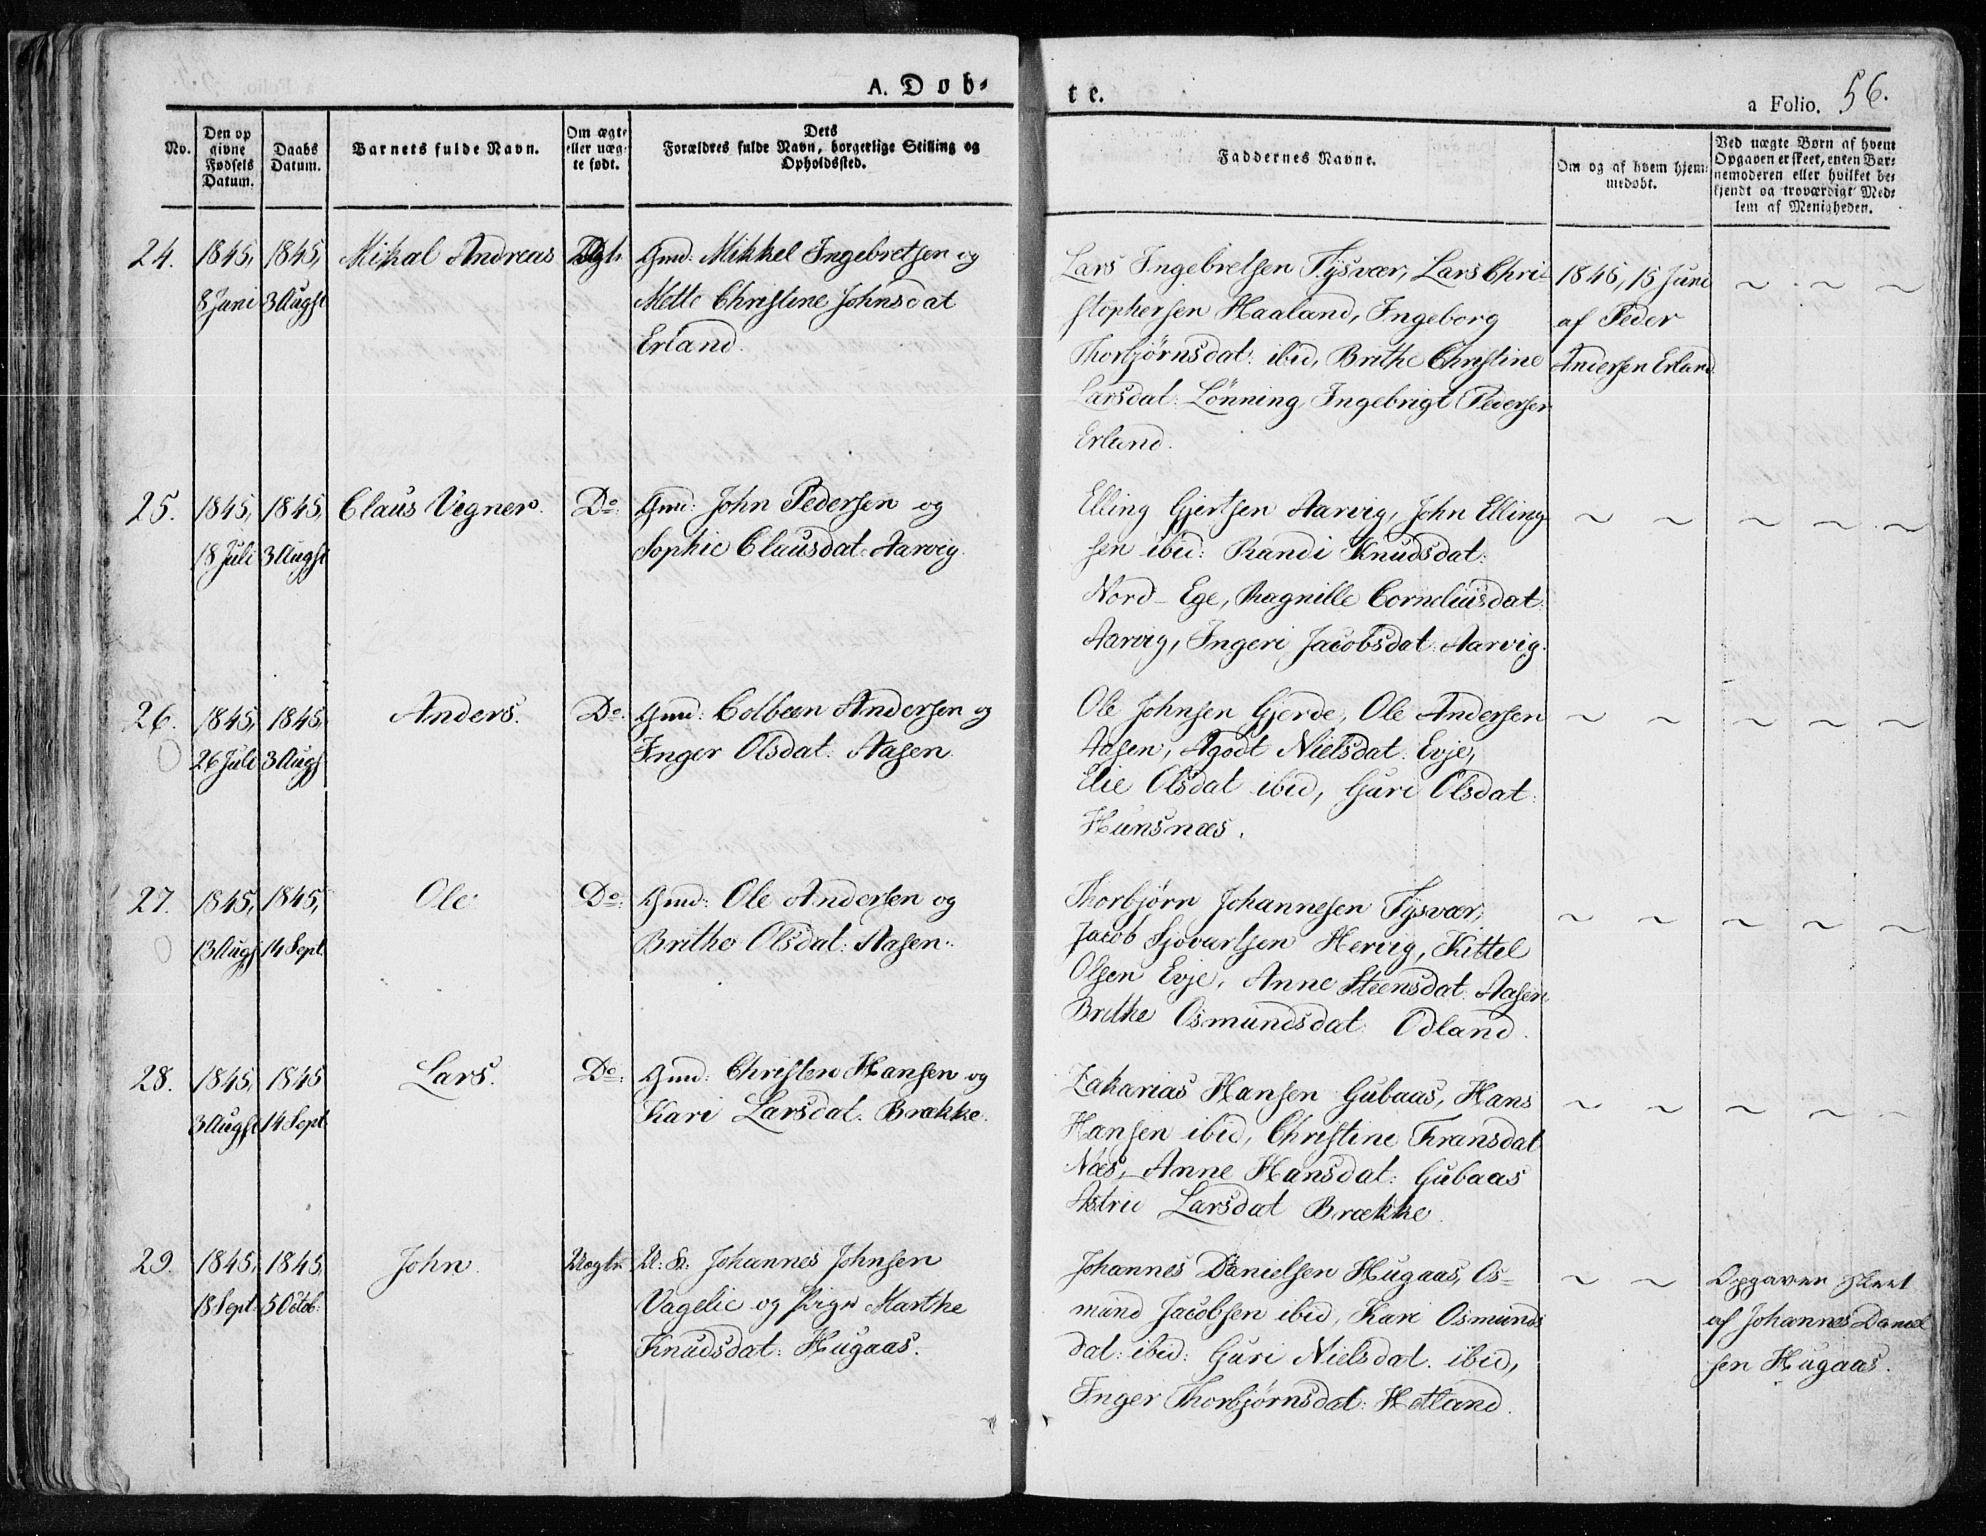 A. Døb-
te.
a Folio. 56.
No.
Den op
givne
Fødsels
Datum.
Daabs
Datum.
Barnets fulde Navn.
Om ægte
eller uæg-
te født.
Dets
Forældres fulde Navn, borgerlige Stilling og
Opholdssted.
Faddernes Navne.
Om og af hvem hjem-
medøbt.
Ved uægte Børn af hvem
Opgaven er skeet, enten Bar-
nemoderen eller hvilket be-
kjendt og troværdigt Med-
lem af Menigheden.
24.
1845,
8 Juni
1845,
3 Augst
Mikal Andreas
Ægt.
Gmd: Mikkel Ingebretsen og
Mette Christine Johnsdat
Erland.
Lars Ingebretsen Tysvær, Lars Chri-
stophersen Haaland, Ingeborg
Thorbjørnsdat: ibid, Brithe Christine
Larsdat: Lönning, Ingebrigt Pedersen
Erland.
1845, 15 Juni
af Peder
Andersen Erland.
25.
1845,
18 Juli
1845,
3 Augst
Claus Vegner.
Do:
Gmd: John Pedersen og
Sophie Clausdat: Aarvig.
Elling Gjertsen Aarvig, John Elling-
sen ibid: Randi Knudsdat:
Nord-Ege, Ragnille Corneliusdat:
Aarvig, Ingeri Jacobsdat: Aarvig.
26.
1845,
26 Juli
1845,
3 Augs
Anders.
Do:
Gmd: Colbeen Andersen og
Inger Olsdat: Aasen.
Ole Johnsen Gjerde, Ole Andersen
Aasen, Agodt Nielsdat: Evje,
Elie Olsdat ibid, Guri Olsdat:
Hunsnæs.
27.
1845,
13 Augs
1845,
14 Sept.
Ole
Do:
Gmd: Ole Andersen og
Brithe Olsdat: Aasen.
Thorbjörn Johannesen Tysvær,
Jacob Sjovartsen Hervig, Kittel
Olsen Evje, Anne Steensdat: Aasen,
Brithe Osmundsdat: Odland.
28.
1845,
3 Augst
1845
14 Sept
Lars.
Do:
Gmd: Christen Hansen og
Kari Larsdat: Brække.
Zakarias Hansen Gubaas, Hans
Hansen ibid, Christine Fransdat
Næs, Anne Hansdat: Gubaas
Astrie Larsdat Brække.
29.
1845,
18 Sept:
1845,
5 Octob:
John.
Uægte.
U: K: Johannes Johnsen
Vagelie og Pige Marthe
Knudsdat: Hugaas.
Johannes Danielsen Hugaas, Os-
mund Jacobsen ibid, Kari Osmunds
dat: ibid: Guri Nielsdat. ibid,
Inger Thorbjørnsdat: Hetland.
Opgaven skeet
af Johannes Daniel
sen Hugaas.